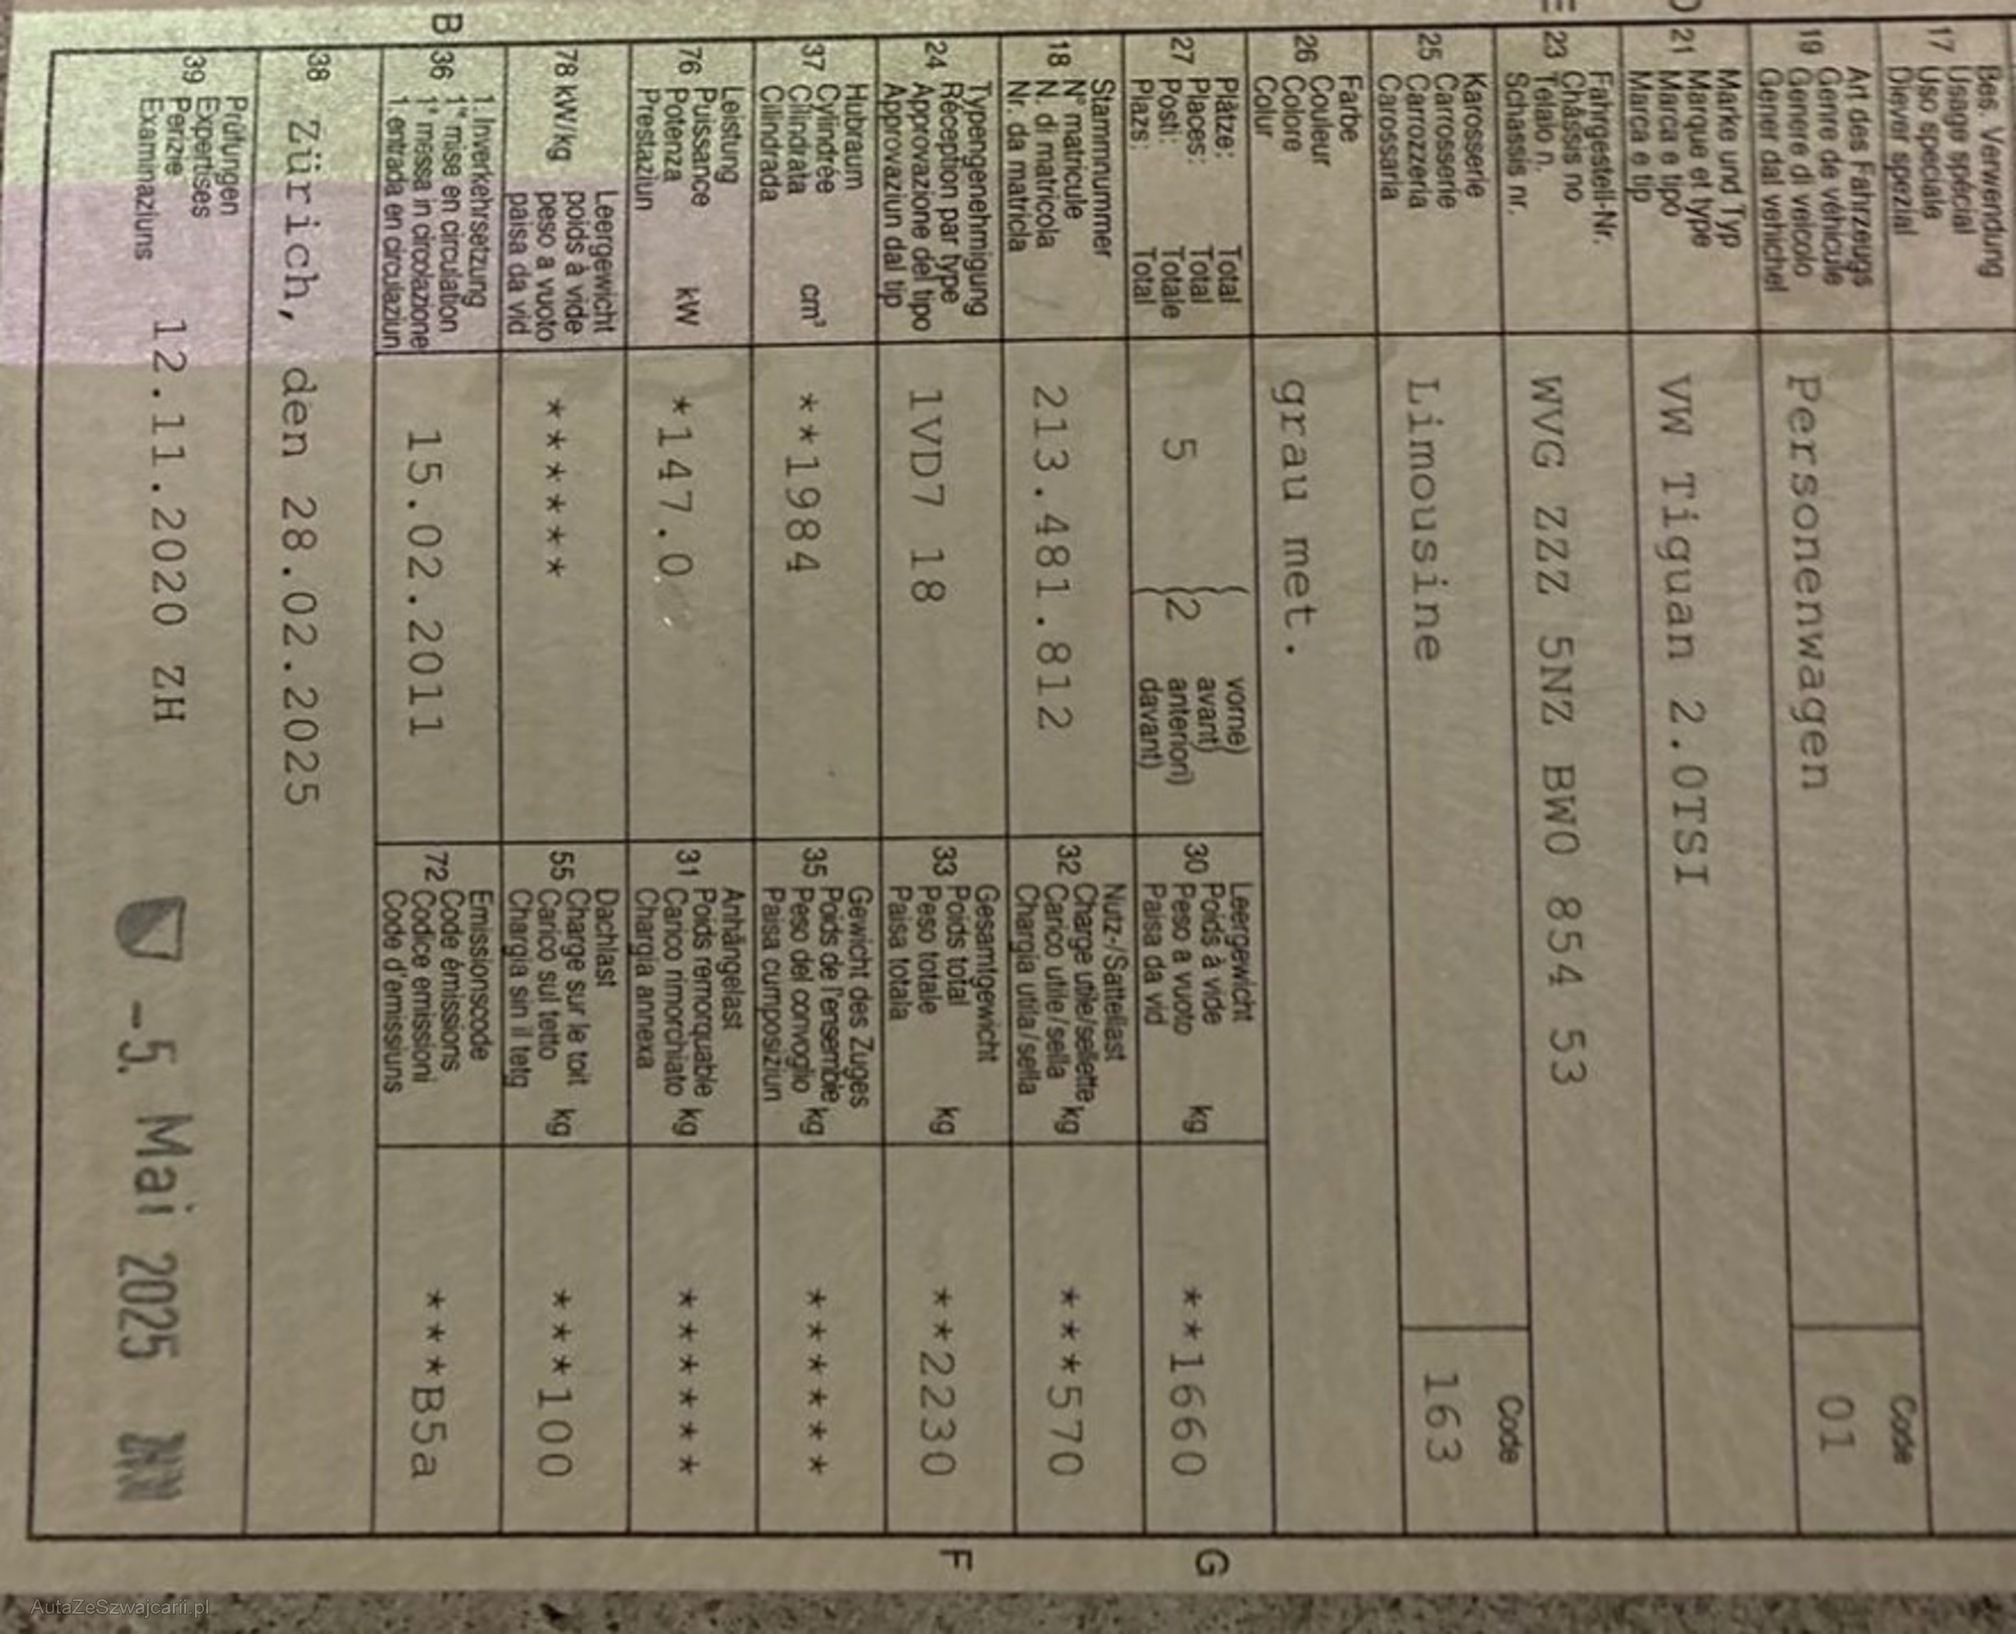 Bes. Verwendung
Usage spécial
17 Uso speciale
Diever spezial
Art des Fahrzeugs
Genre de véhicule
19 Genere di veicolo
Gener dal vehichel
Personenwagen
Code
01
Marke und Typ
Marque et type
21 Marca e tipo
Marca e tip
VW Tiguan 2.0TSI
Fahrgestell-Nr.
Châssis no
23 Telaio n.
Schassis nr.
WVG ZZZ 5NZ BW0 854 53
Karosserie
Carrosserie
25 Carrozzeria
Carossaria
Limousine
Code
163
Farbe
Couleur
26 Colore
Colur
grau met.
Plätze: Total
Places: Total
27 Posti: Totale
Plazs: Total
5
2
vorne)
avant)
anteriori)
davant)
Leergewicht
Poids à vide
30 Peso a vuoto kg
Paisa da vid
**1660
G
Stammnummer
N° matricule
18 N. di matricola
Nr. da matricla
213.481.812
Nutz-/Sattellast
Charge utile/sellette
32 Carico utile/sella kg
Chargia utila/sella
***570
Typengenehmigung
Réception par type
24 Approvazione del tipo
Approvaziun dal tip
1VD7 18
Gesamtgewicht
Poids total
33 Peso totale kg
Paisa totala
**2230
F
Hubraum
Cylindrée
37 Cilindrata cm³
Cilindrada
**1984
Gewicht des Zuges
Poids de l'ensemble
35 Peso del convoglio kg
Paisa cumposiziun
******
Leistung
Puissance
76 Potenza kW
Prestaziun
*147.0
Anhängelast
Poids remorquable
31 Carico rimorchiato kg
Chargia annexa
******
Leergewicht
poids à vide
78 kW/kg peso a vuoto
paisa da vid
******
Dachlast
Charge sur le toit
55 Carico sul tetto kg
Chargia sin il tetg
***100
B
1. Inverkehrsetzung
1re mise en circulation
36 1a messa in circolazione
1. entrada en circulaziun
15.02.2011
Emissionscode
Code émissions
72 Codice emissioni
Code d'emissiuns
***B5a
38 Zürich, den 28.02.2025
Prüfungen
Expertises
39 Perizie
Examinaziuns
12.11.2020 ZH
-5. Mai 2025
AutaZeSzwajcarii.pl